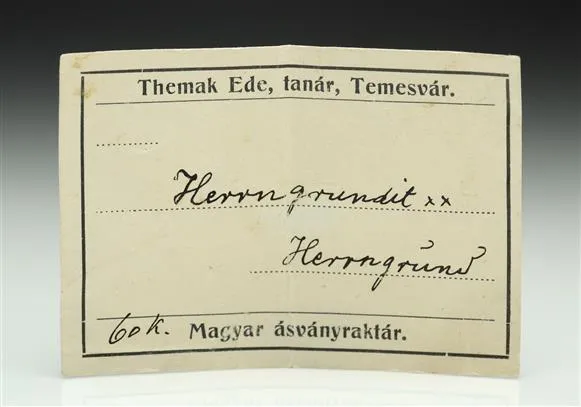 Themak Ede, tanár, Temesvár.
Herrngrundit xx
Herrngrund
60 K. Magyar ásványraktár.